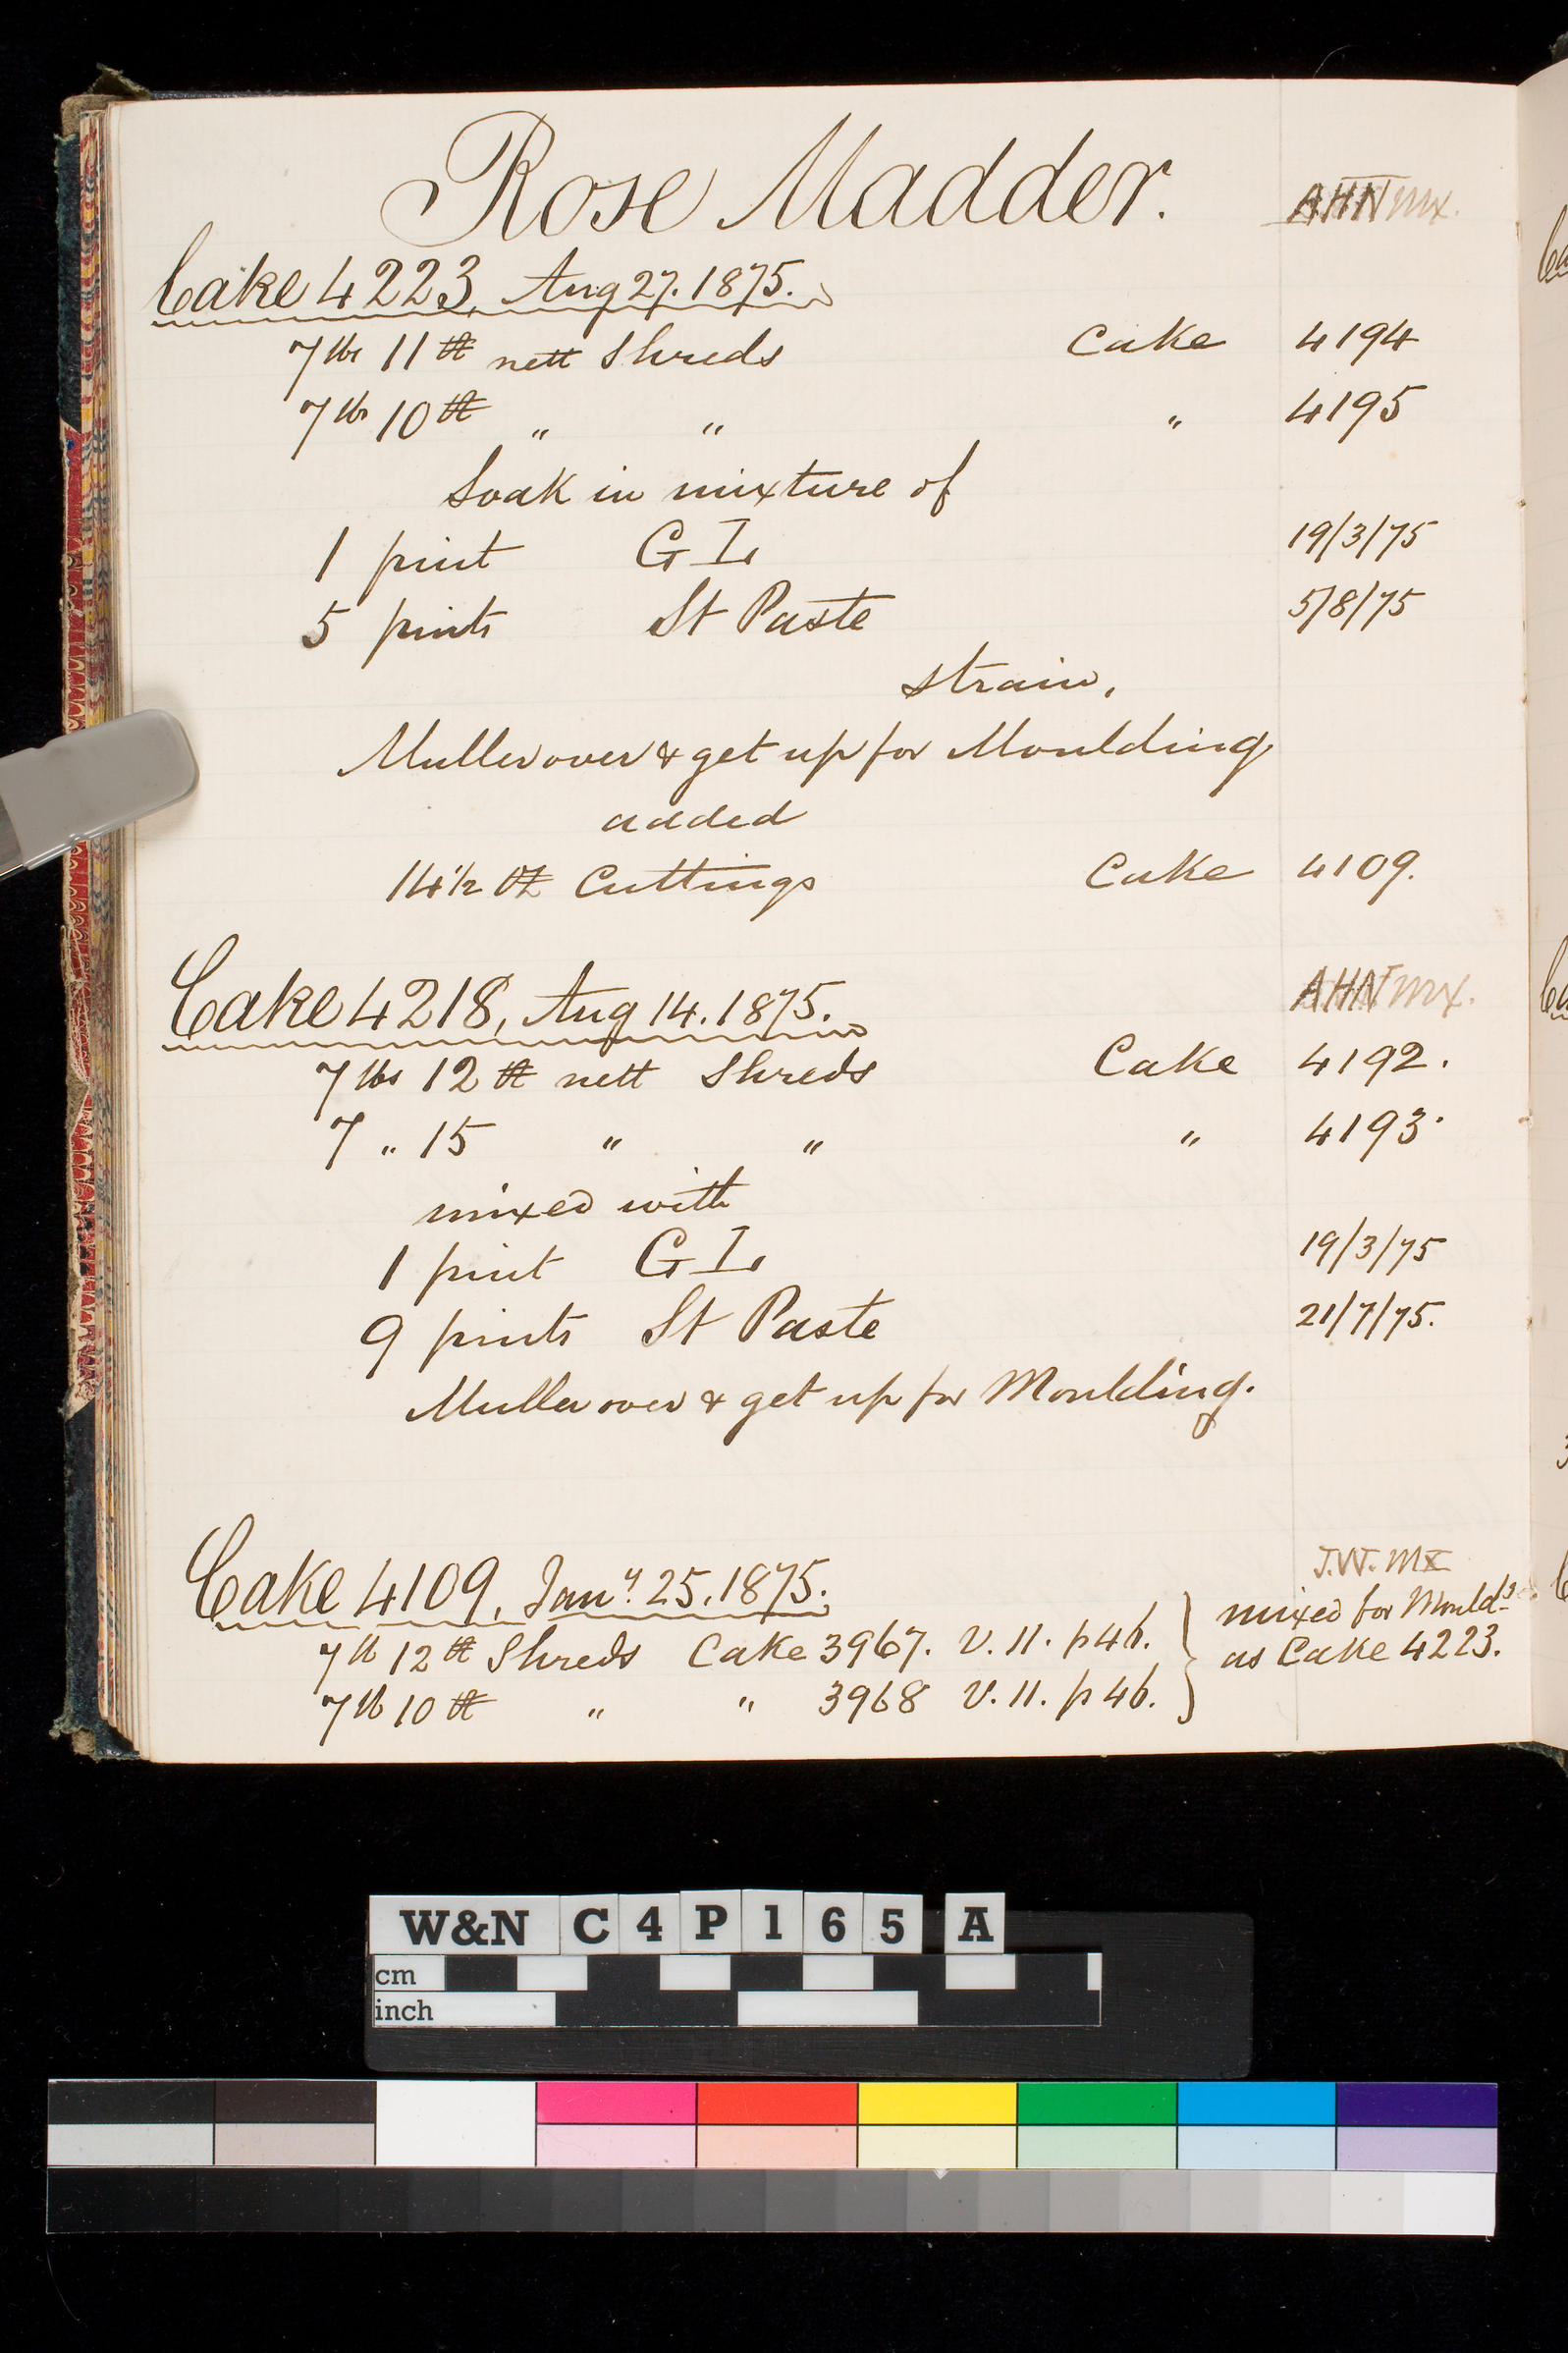 Rose Madder. AHN mx.
Cake 4223, Aug 27. 1875.
7 lbs 11 oz nett Shreds Cake 4194
7 lb 10 oz " " " 4195
Soak in mixture of
1 pint G I, 19/3/75
5 pints St Paste 5/8/75
strain,
Muller over & get up for Moulding
added
14 1/2 oz Cuttings Cake 4109.
Cake 4218, Aug 14. 1875. AHN mx.
7 lbs 12 oz nett Shreds Cake 4192.
7 " 15 " " " 4193.
mixed with
1 pint G I, 19/3/75
9 pints St Paste 21/7/75.
Muller over & get up for Moulding.
Cake 4109, Jany 25. 1875. J.W. mx
mixed for Mouldg
7 lb 12 oz Shreds Cake 3967. V. 11. p 46. as Cake 4223.
7 lb 10 oz " " 3968 V. 11. p 46.
W&N C4P165 A
cm
inch